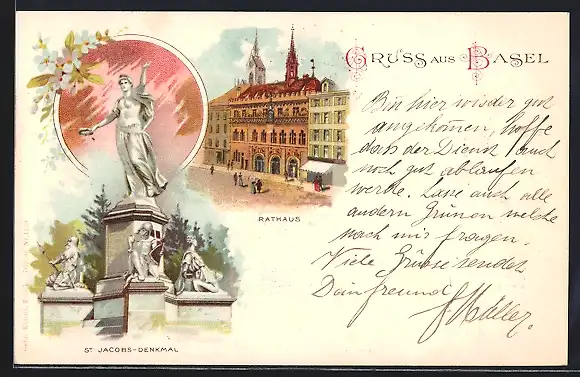 GRUSS AUS BASEL
Bin hier wieder gut
angekomen, hoffe
dass der Dienst auch
noch gut ablaufen
werde. Lasse auch alle
andern Grünen welche
nach mir fragen.
Viele Grüsse sendet
Dein freund
RATHAUS
ST JACOBS-DENKMAL